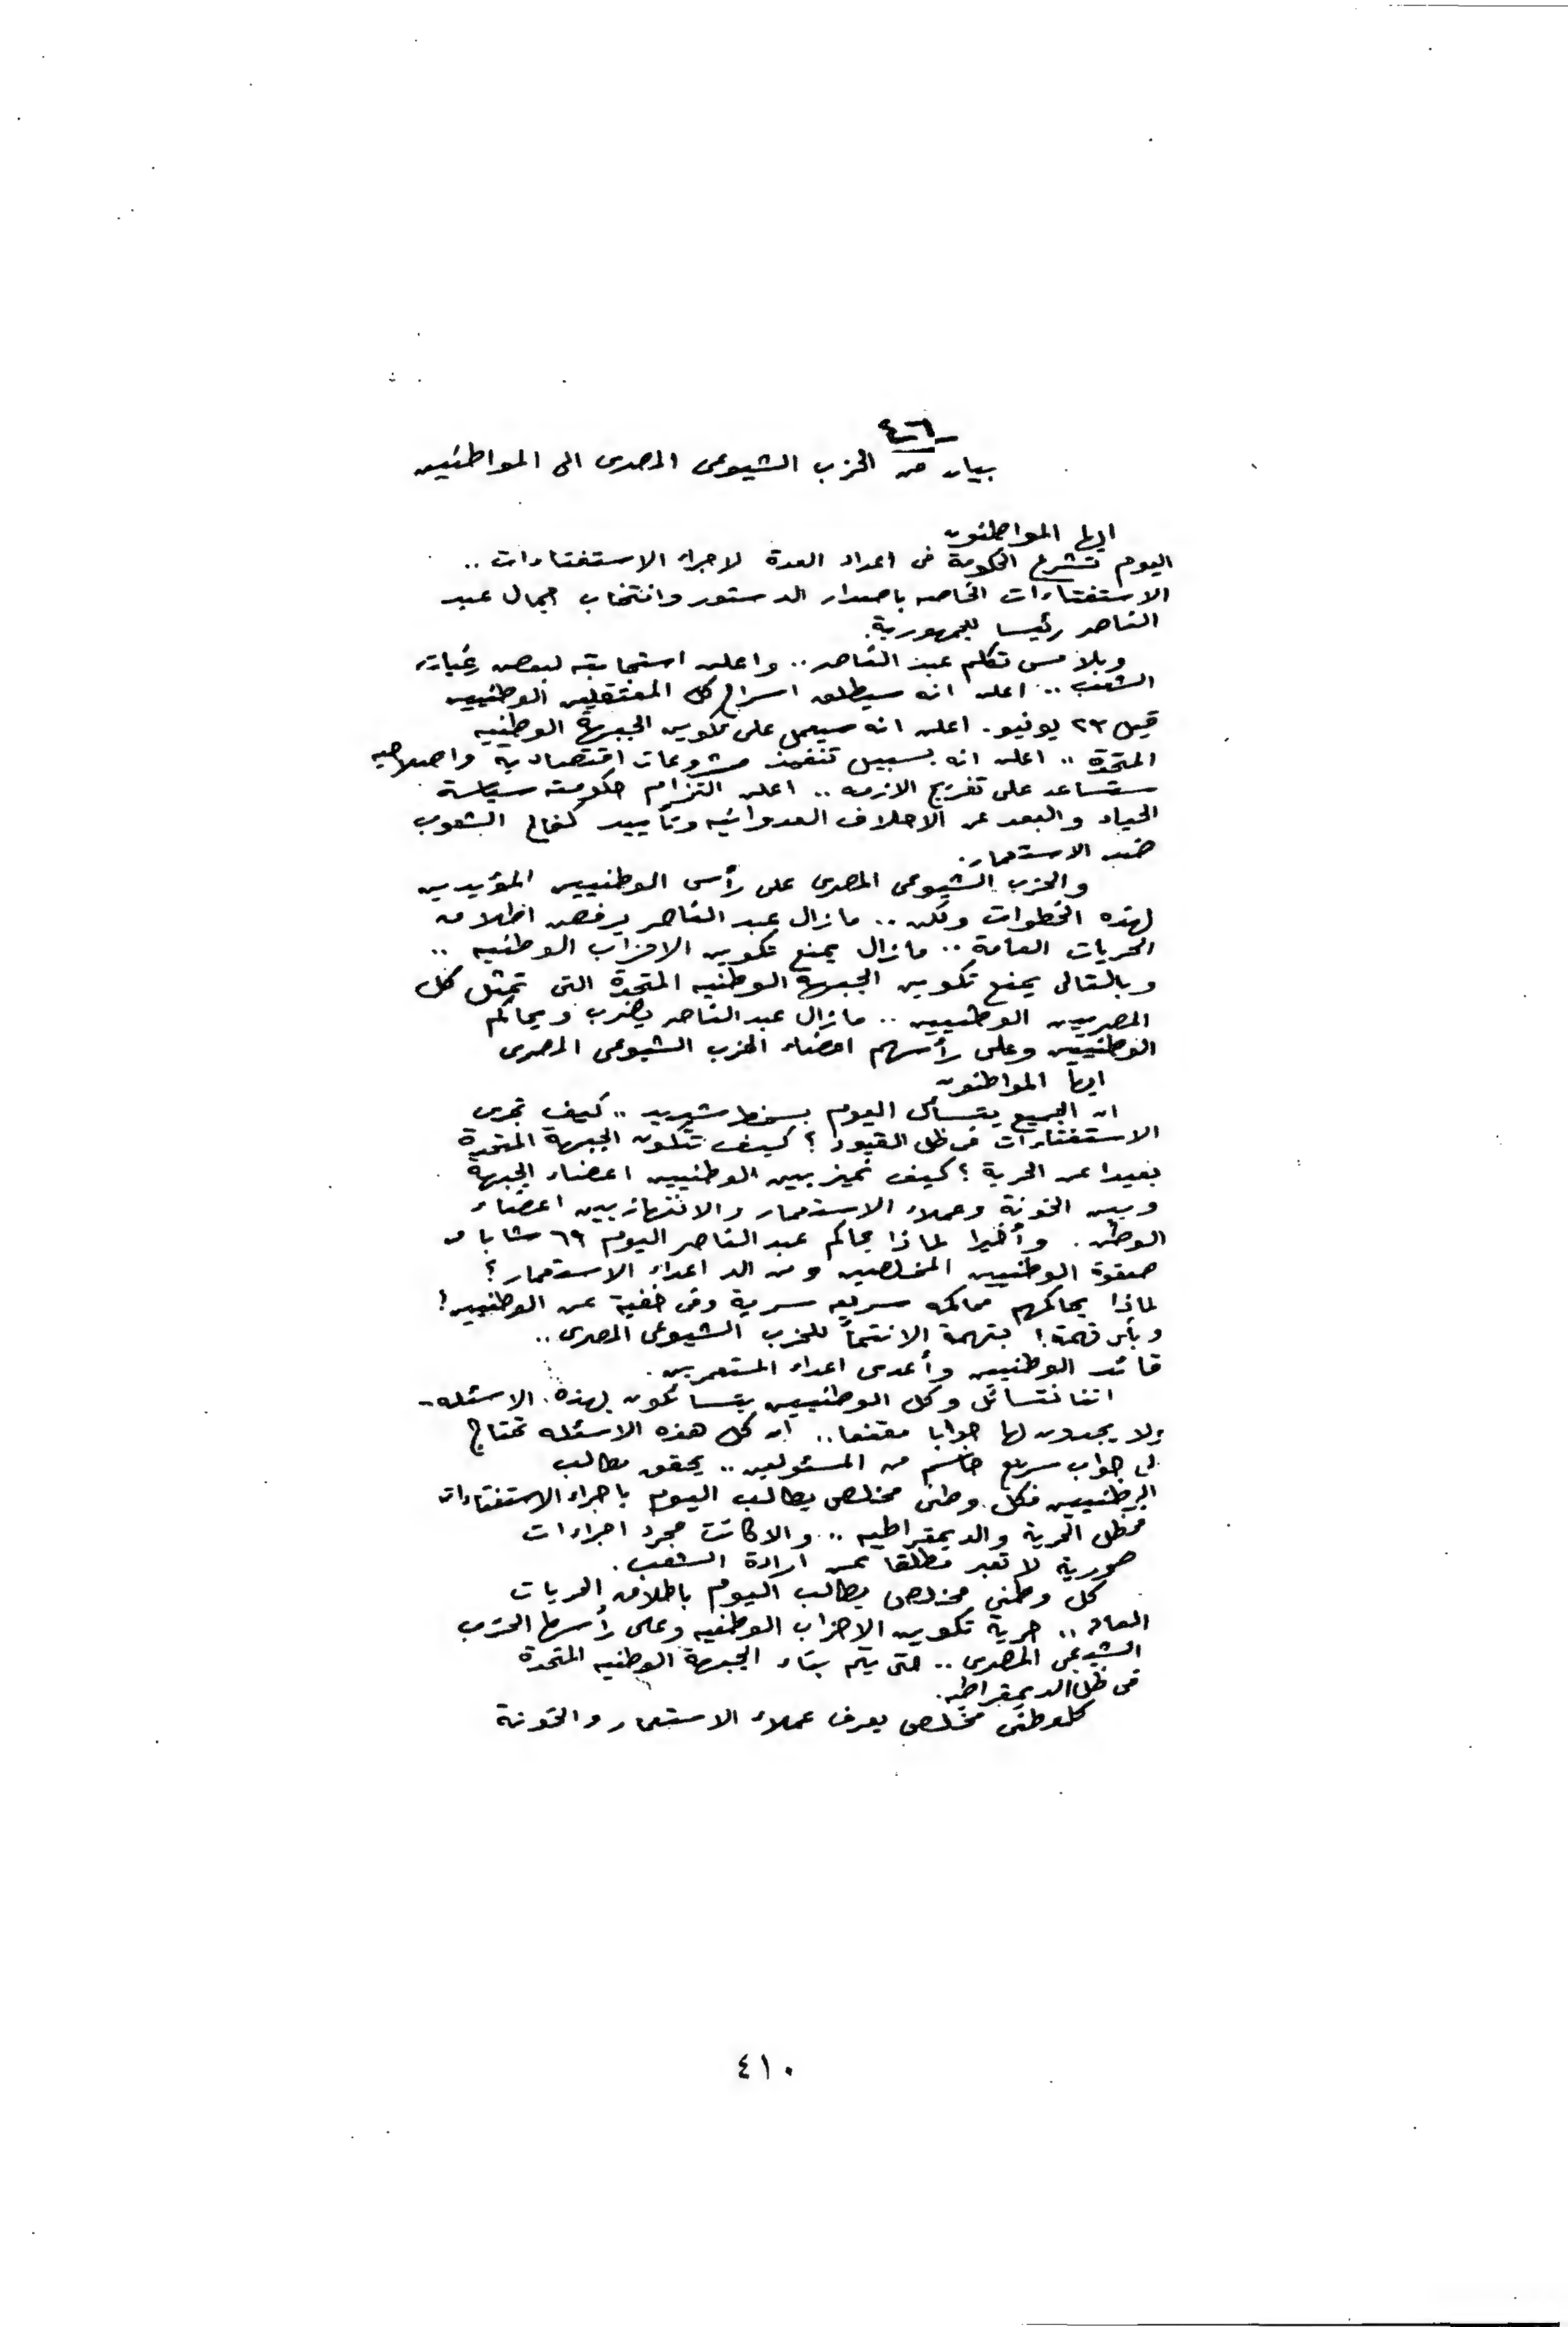 ٤٦
بيان من الحزب الشيوعى المصرى الى المواطنين
ايها المواطنون
اليوم تشرع الحكومة فى اعداد العدة لاجراء الاستفتاءات ..
الاستفتاءات الخاصه باصدار الدستور وانتخاب جمال عبد
الناصر رئيسا للجمهورية.
وبلامس تكلم عبد الناصر .. واعلن استجابته لبعض رغبات
الشعب .. اعلن انه سيطلق اسراح كل المعتقلين الوطنيين
قبل ٢٣ يونيو . اعلن انه سيعمل على تكوين الجبهة الوطنيه
المتحدة .. اعلن انه بسبيل تنفيذ مشروعات اقتصادية واصلاحيه
ستساعد على تفريج الازمه .. اعلن التزام حكومته سياسة
الحياد والبعد عن الاحلاف العدوانيه وتأييد كفاح الشعوب
ضد الاستعمار.
والحزب الشيوعى المصرى على رأس الوطنيين المؤيدين
لهذه الخطوات ولكن .. مازال عبد الناصر يرفض اطلاق
الحريات العامة .. مازال يمنع تكوين الاحزاب الوطنيه ..
وبالتالى يمنع تكوين الجبهة الوطنيه المتحدة التى تمثل كل
المصريين الوطنيين .. مازال عبد الناصر يضرب ويحاكم
الوطنيين وعلى رأسهم اعضاء الحزب الشيوعى المصرى
ايها المواطنون
ان الجميع يتسأل اليوم بسخط شديد .. كيف تجرى
الاستفتاءات فى ظل القيود ؟ كيف تتكون الجبهة المتحدة
بعيدا عن الحرية ؟ كيف نميز بين الوطنيين اعضاء الجبهة
وبين الخونة وعملاء الاستعمار والانتهازيين اعضاء
الوطن . وأخيرا لماذا يحاكم عبد الناصر اليوم ٦٩ شابا من
صفوة الوطنيين المخلصين ومن الد اعداء الاستعمار ؟
لماذا يحاكمهم محاكمه سريعه سرية وفى خفية عن الوطنيين !
وبأى تهمة ! بتهمة الانتمأ للحزب الشيوعى المصرى ..
قائد الوطنيين وأعدى اعداء المستعمرين .
اننا نتسائل وكل الوطنيين يتسائلون بهذه الاسئله -
ولا يجدون لها جوابا مقنعا .. ان كل هذه الاسئله تحتاج
لى جواب سريع حاسم من المسئولين .. يحقق مطالب
الوطنيين فكل وطنى مخلص يطالب اليوم باجراء الاستفتاءات
فى ظل الحرية والديمقراطيه .. والا كانت مجرد اجراءات
صورية لا تعبر مطلقا عن ارادة الشعب .
كل وطني مخلص يطالب اليوم باطلاق الحريات
العامه .. حرية تكوين الاحزاب الوطنيه وعلى رأسها الحزب
الشيوعى المصرى .. حتى يتم بناء الجبهة الوطنيه المتحدة
فى ظل الديمقراطيه.
كل وطنى مخلص يعرف عملاء الاستعمار والخونة
٤١٠